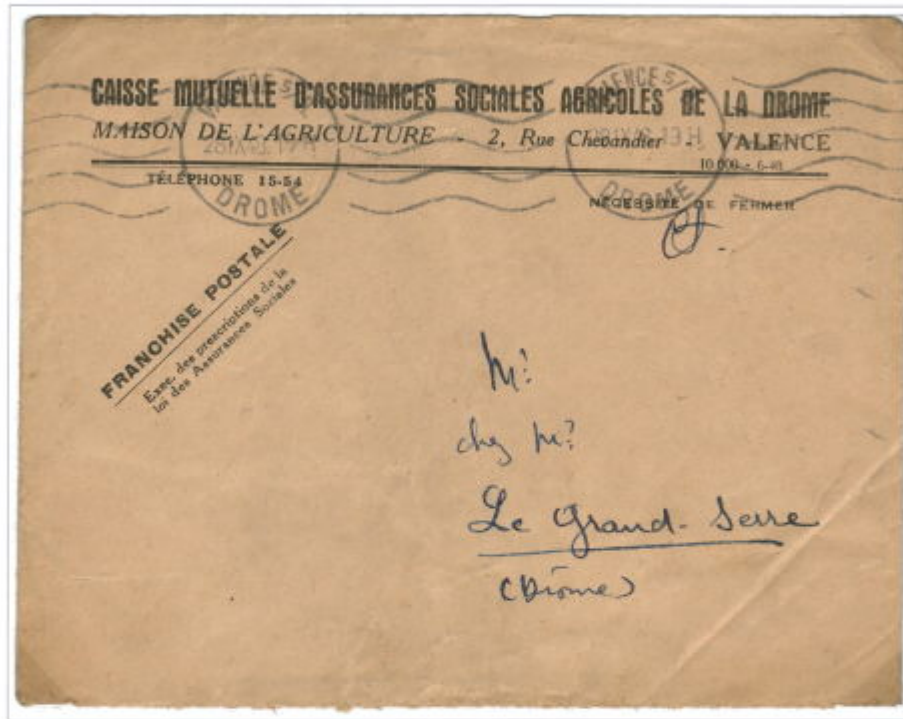 CAISSE MUTUELLE D'ASSURANCES SOCIALES AGRICOLES DE LA DROME
MAISON DE L'AGRICULTURE - 2, Rue Chevandier - VALENCE
10.000 - 6-40
TÉLÉPHONE 15-54
NÉCESSITÉ DE FERMER
DROME
DROME
FRANCHISE POSTALE
Exec. des prescriptions de la
loi des Assurances Sociales
Mr
chez Mr
Le Grand-Serre
(Drôme)